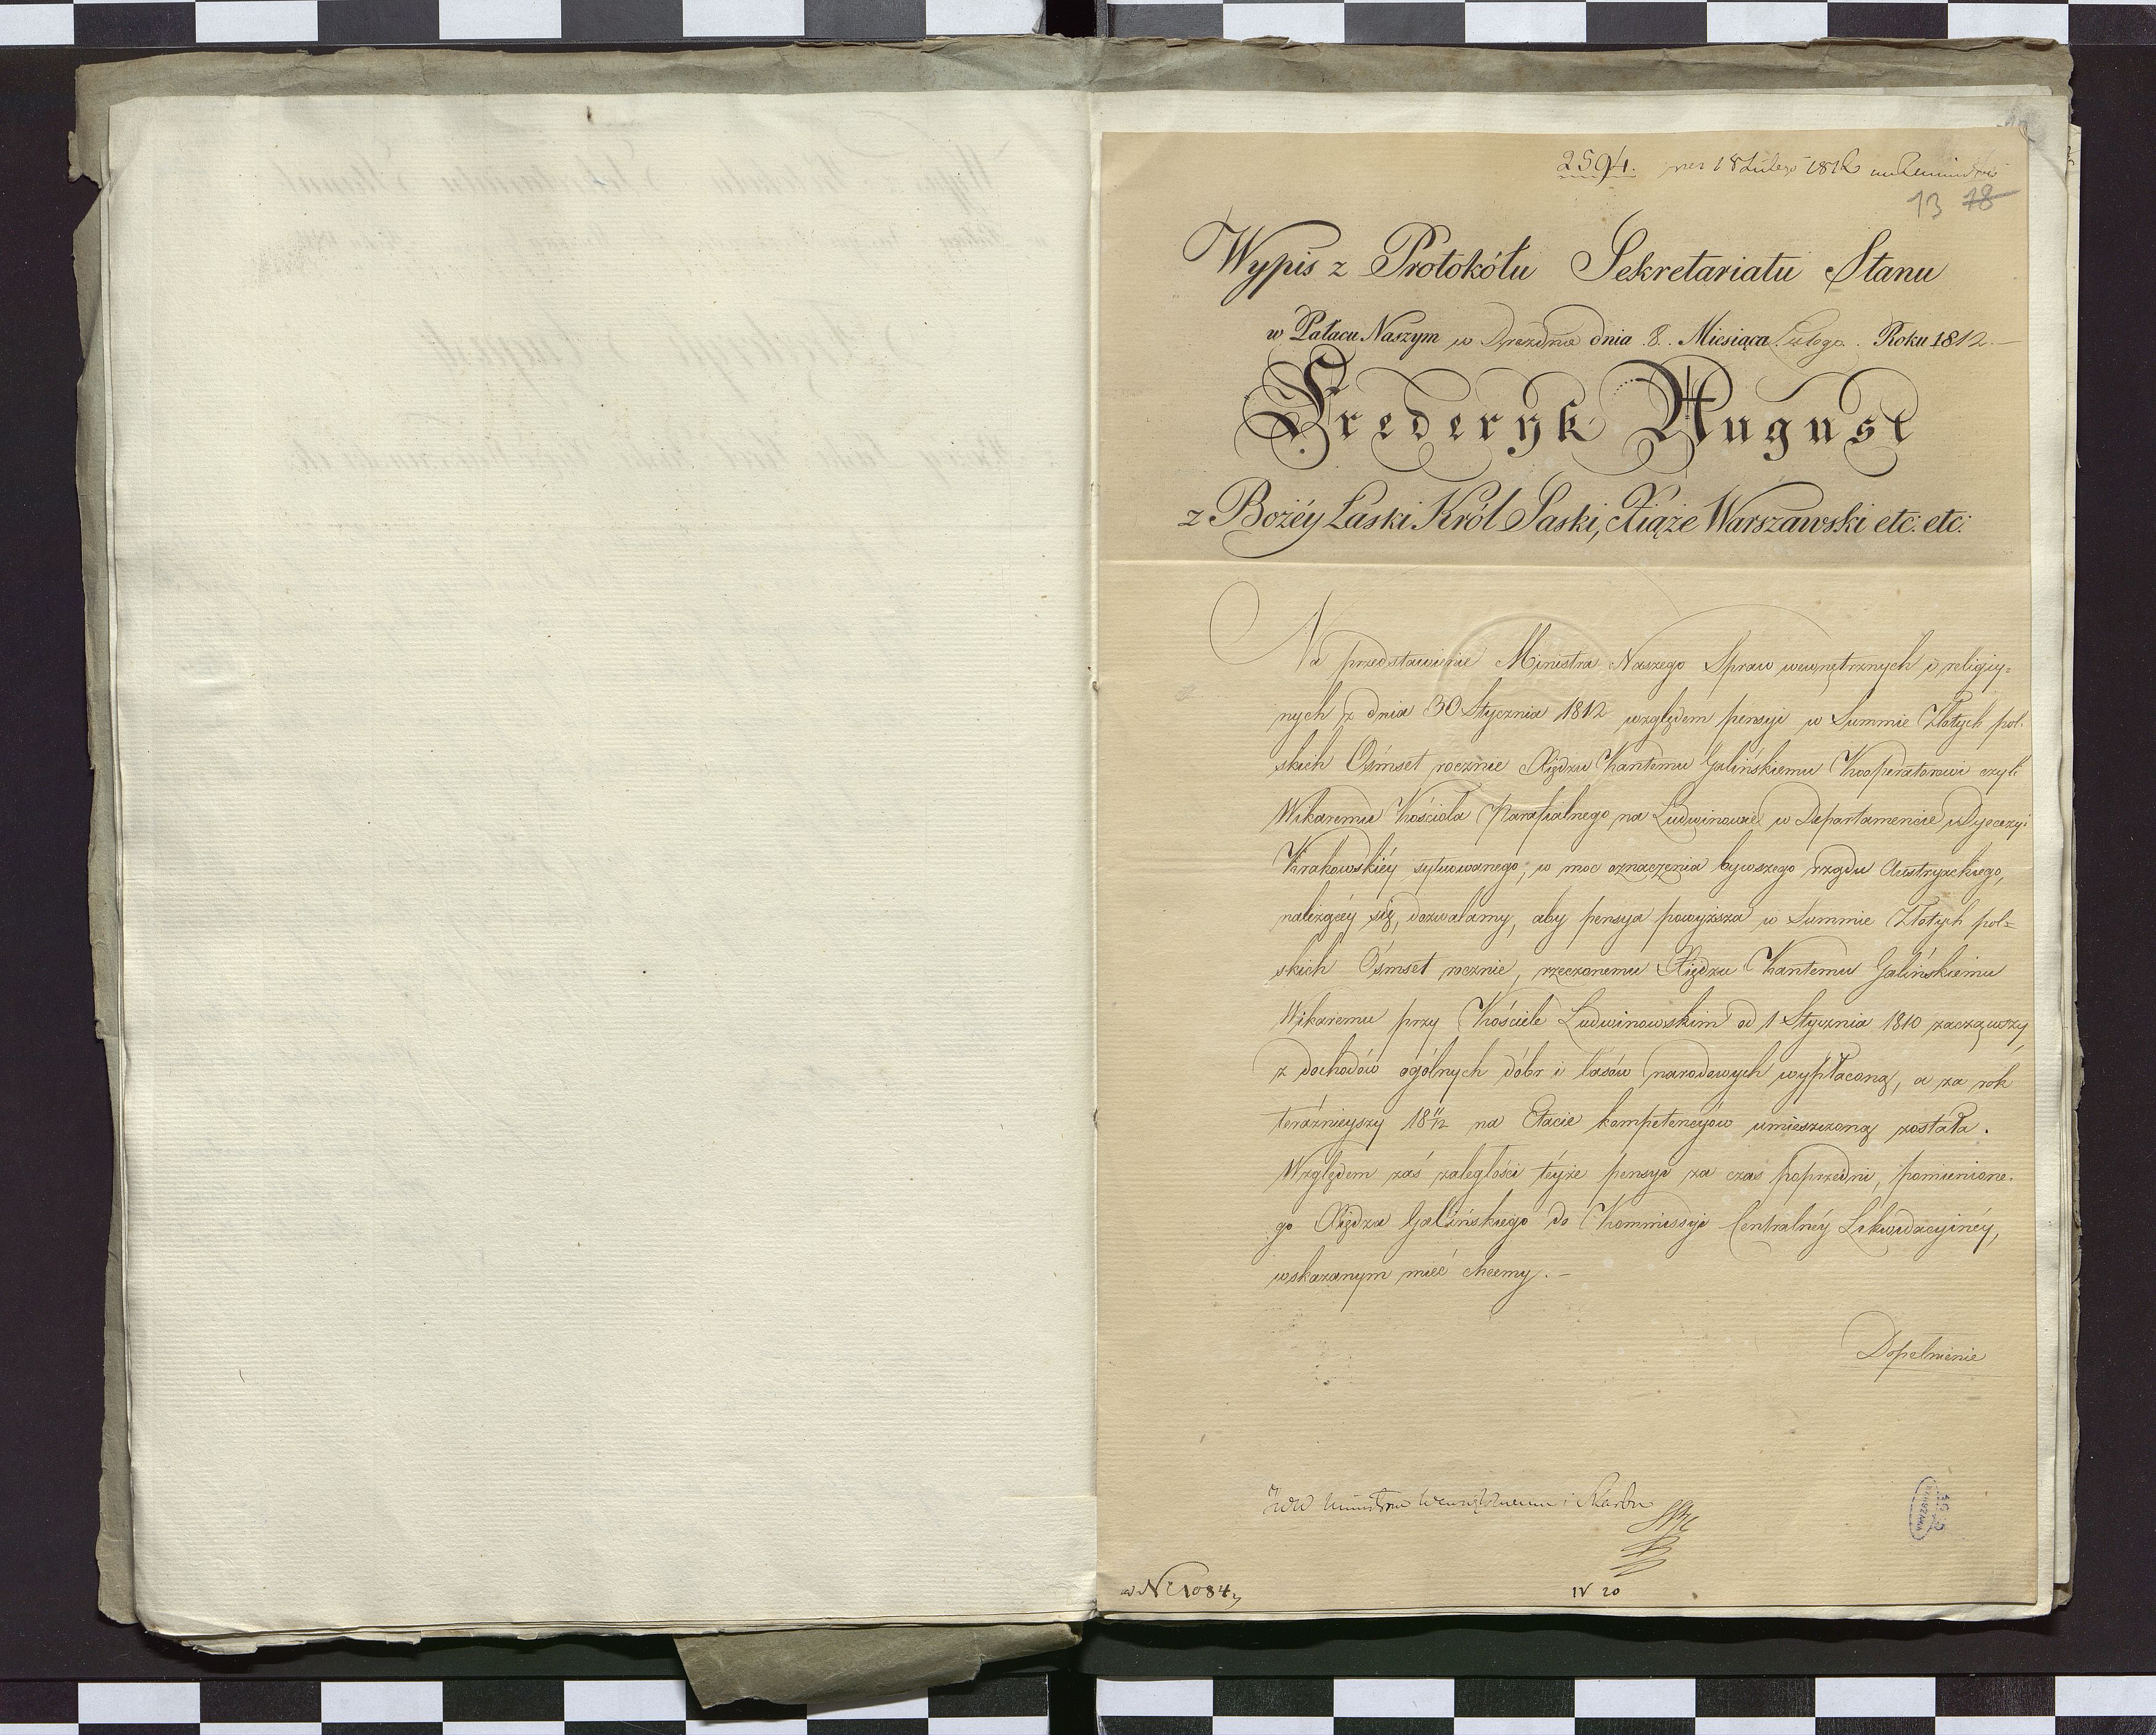 2594. 18 Lutego 1812
13 18
Wypis z Protokółu Sekretariatu Stanu
w Pałacu Naszym w Dreznie dnia 8. Miesiąca Lutego. Roku 1812.
Frederyk August
z Bożéy Łaski Król Saski, Xiąże Warszawski etc: etc:
Na przedstawienie Ministra Naszego Spraw wewnętrznych i religiy-
nych z dnia 30 Stycznia 1812 względem pensyi w Summie Złotych pol-
skich Ośmset rocznie Xiędzu Kantemu Galińskiemu Kooperatorowi czyli
Wikaremu Kościoła Parafialnego na Ludwinowie w Departamencie i Dyecezyi
Krakowskiéy sytuowanego, w moc oznaczenia bywszego rządu Austryackiego,
należącéy się, dozwalamy, aby pensya powyższa w Summie Złotych pol-
skich Ośmset rocznie, rzeczonemu Xiędzu Kantemu Galińskiemu
Wikaremu przy Kościele Ludwinowskim od 1 Stycznia 1810 zacząwszy,
z dochodów ogólnych dóbr i lasów narodowych wypłaconą, a za rok
teraźnieyszy 18 11/12 na Etacie kompetencyów umieszczoną została.
Względem zaś zaległości téyże pensyi za czas poprzedni, pomienione-
go Xiędza Galińskiego do Kommissyi Centralnéy Likwidacyinéy,
wskazanym mieć chcemy. –
Dopełnienie
JWW Ministrom Wewnętrznemu i Skarbu
w Nr 1084
IV 20